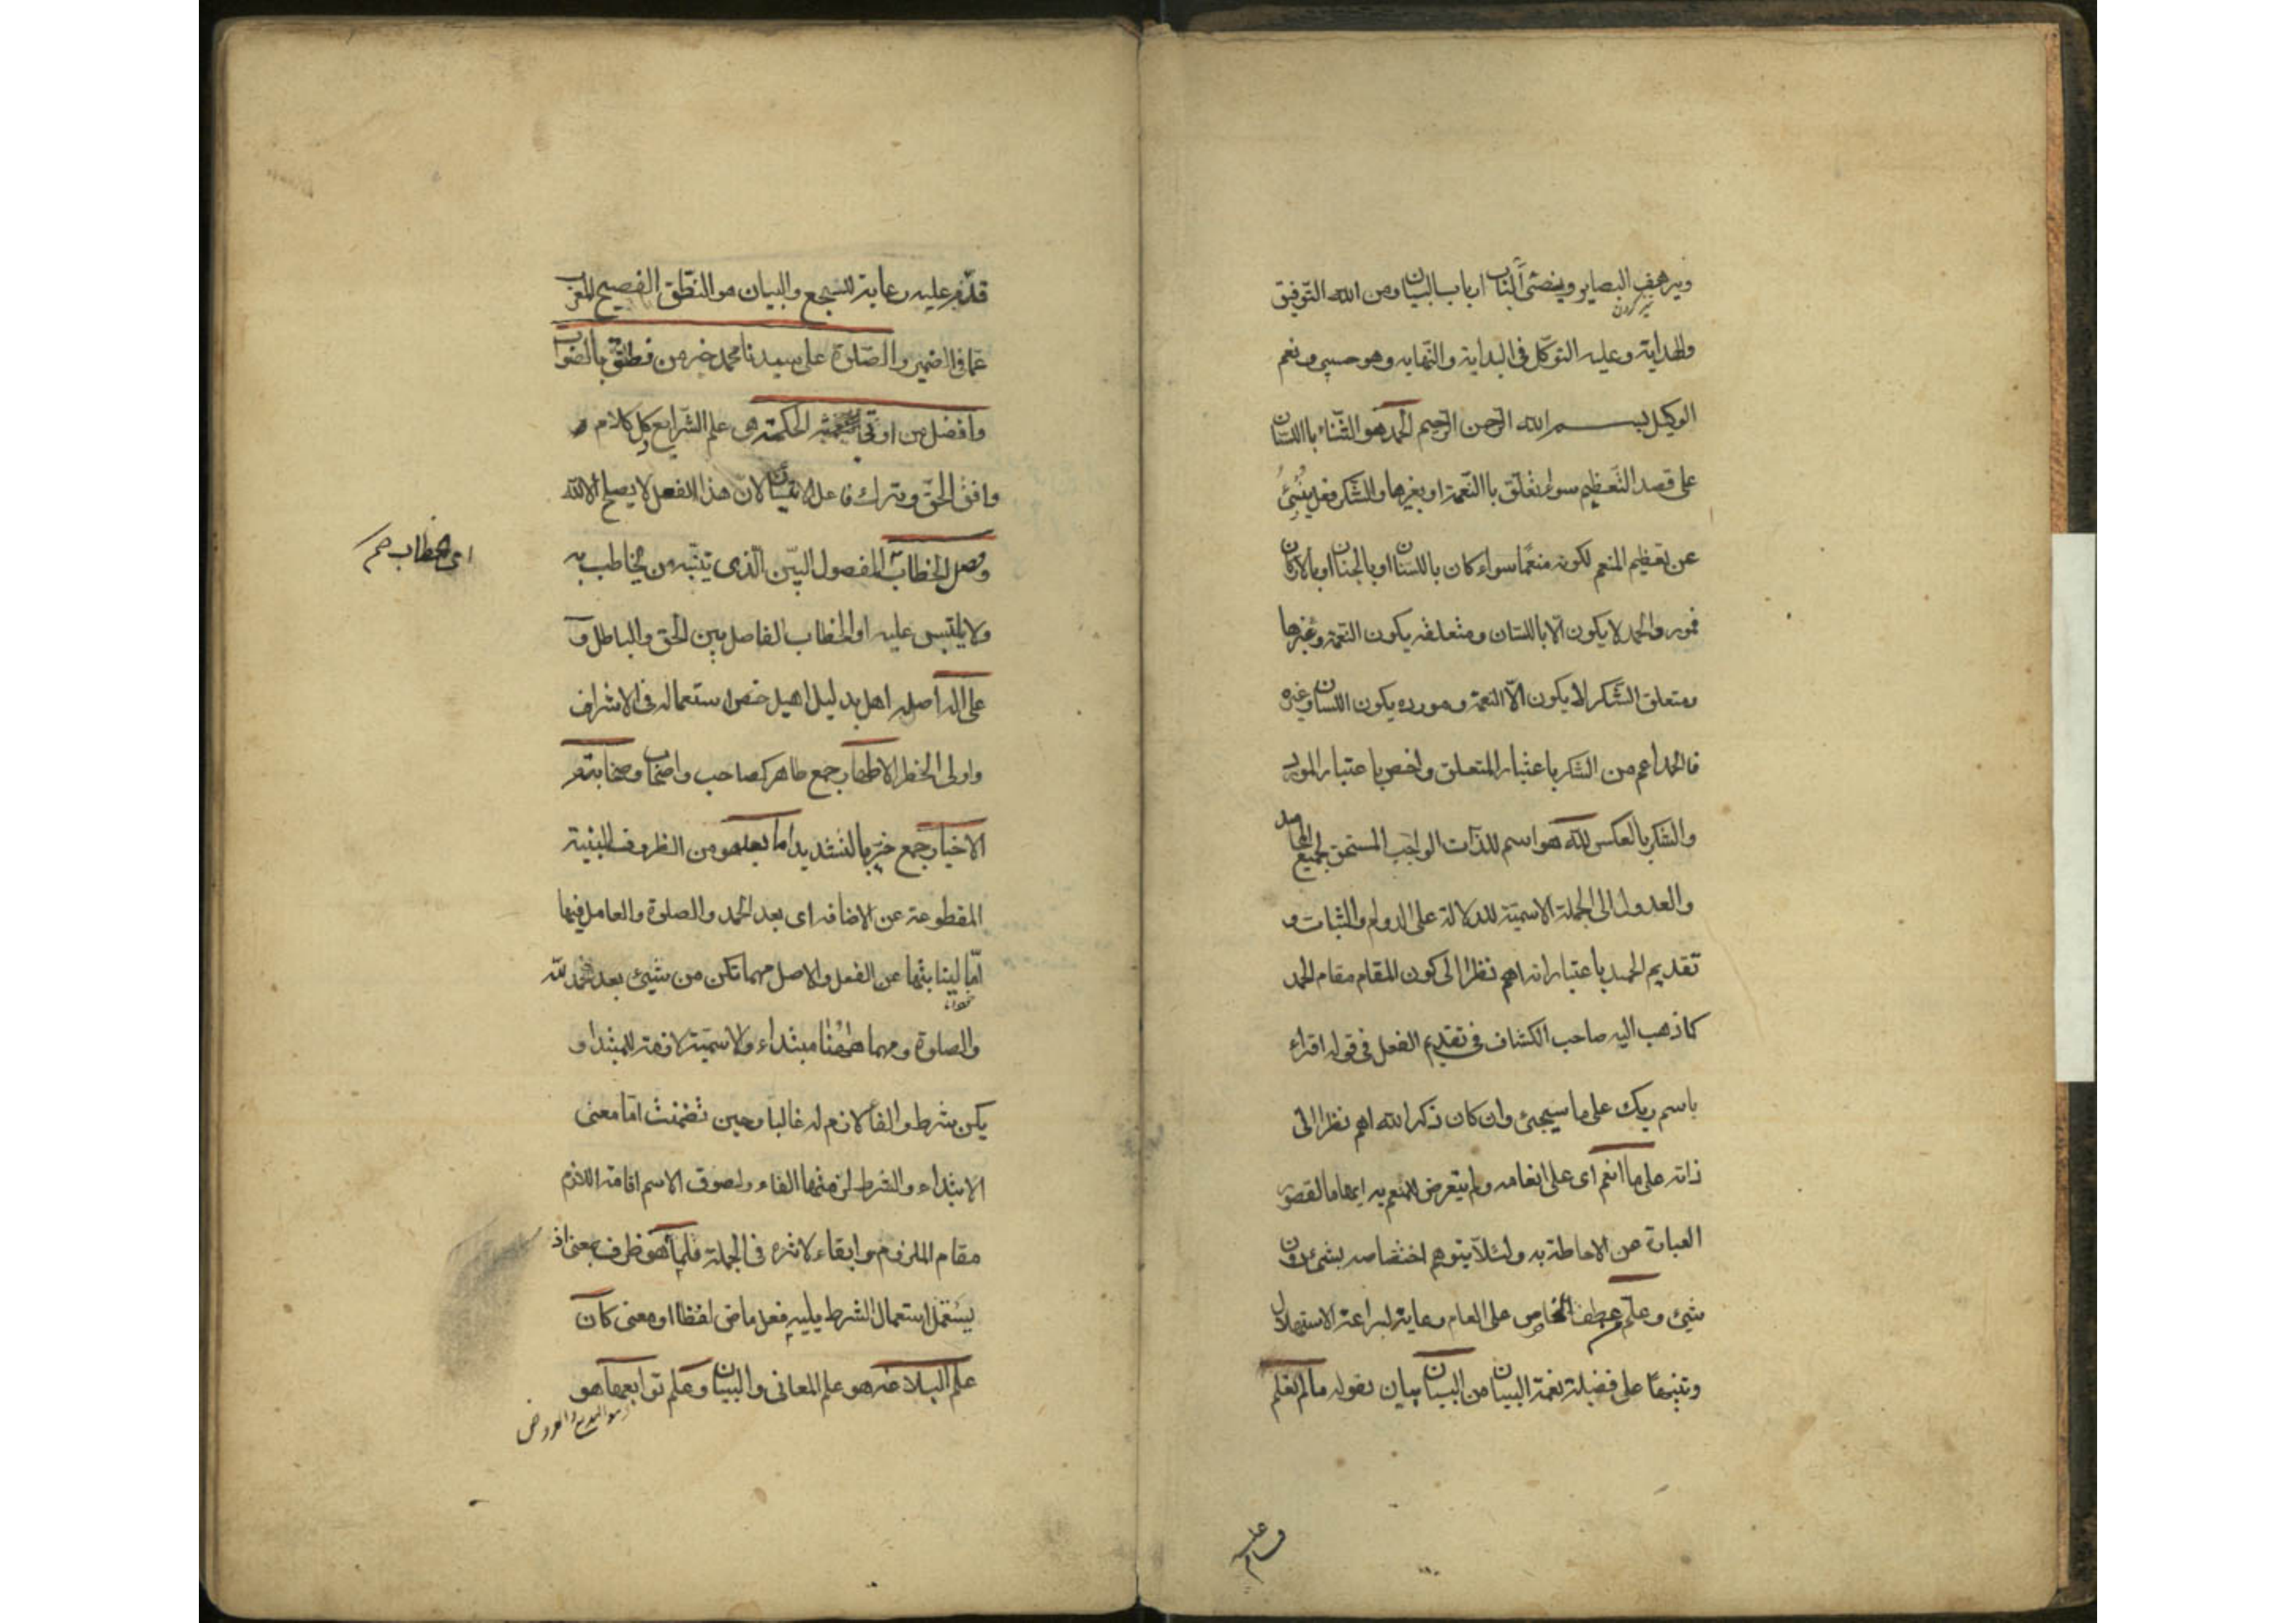 ويرهف البصاير ويضئ الباب ارباب البيان ومن الله التوفيق
تيز كردن
والهداية وعليه التوكل فى البداية والنهايه وهو حسبى ونعم
الوكيل بسم الله الرحمن الرحيم الحمد هو الثناء باللسان
على قصد التعظيم سواء تعلق بالنعمة او بغيرها والشكر فعل ينبئ
عن تعظيم المنعم لكونه منعما سواء كان باللسان او بالجنان او بالاركان
فمورد الحمد لا يكون الا باللسان ومتعلقه يكون النعمة وغيرها
ومتعلق الشكر لا يكون الا النعمة ومورده يكون اللسان وغيره
فالحمد اعم من الشكر باعتبار المتعلق واخص باعتبار المورد
والشكر بالعكس لله هو اسم للذات الواجب المستحق لجميع المحامد
والعدول الى الجملة الاسمية للدلالة على الدوام والثبات و
تقديم الحمد باعتبار انه اهم نظرا الى كون المقام مقام الحمد
كما ذهب اليه صاحب الكشاف فى تقديم الفعل فى قوله اقراء
باسم ربك على ما سيجئ وان كان ذكر الله اهم نظرا الى
ذاته على ما انعم اى على انعامه ولم يتعرض للمنعم به ايهاما لقصور
العبارة عن الاحاطة به ولئلا يتوهم اختصاصه بشئ دون
شئ وعلم من عطف الخاص على العام رعاية لبراعة الاستهلال
وتنبيها على فضيلة نعمة البيان من البيان بيان لقوله ما لم نعلم
قدم عليه رعاية للسجع والبيان هو النطق الفصيح المعرب
عما فى الضمير والصلوة على سيدنا محمد خير من نطق بالصواب
وافضل من اوتى الحكمة هى علم الشرايع وكل كلام
وافق الحق وترك فاعل الايتان لان هذا الفعل لا يصلح الا لله
وفصل الخطاب المفصول البين الذى يتبينه من يخاطب به
اى الخطاب صح
ولا يلتبس عليه او الخطاب الفاصل بين الحق والباطل و
على اله اصله اهل بدليل اهيل خص استعماله فى الاشراف
واولى الخطر الاطهار جمع طاهر كصاحب واصحاب وصحابته
الاخيار جمع خير بالتشديد اما بعد هو من الظروف المبنية
المقطوعة عن الاضافه اى بعد الحمد والصلوة والعامل فيها
اما لنيابتها عن الفعل والاصل مهما تكن من شيئ بعد حمد لله
والصلوة ومهما ههنا مبتداء والاسمية لازمة للمبتدا و
يكن شرط والفاء لازم له غالبا وحين تضمنت اما معنى
الابتداء والشرط لزمتها الفاء ولصوق الاسم اقامة اللازم
مقام الملزوم وابقاء لاثره فى الجملة فلما هو ظرف بمعنى اذ
يستعمل استعمال الشرط يليه فعل ماضى لفظا او معنى كان
علم البلاغة هو علم المعانى والبيان وعلم توابعها هو
هو البديع والعروض